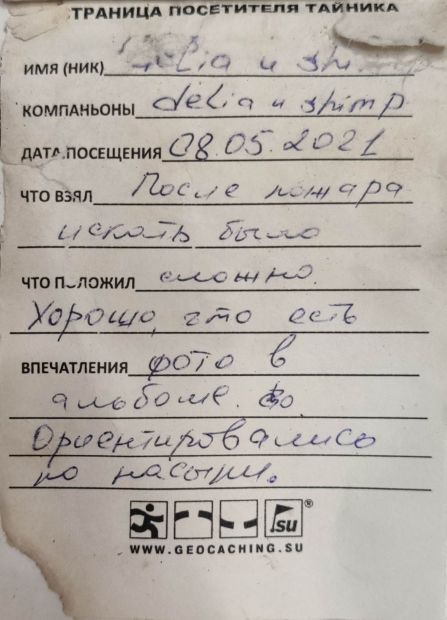 ТРАНИЦА ПОСЕТИТЕЛЯ ТАЙНИКА
ИМЯ (НИК) delia и shimp
КОМПАНЬОНЫ delia и shimp
ДАТА ПОСЕЩЕНИЯ 08.05.2021
ЧТО ВЗЯЛ После пожара
искать было
ЧТО ПОЛОЖИЛ сложно.
Хорошо, что есть
ВПЕЧАТЛЕНИЯ фото в
альбоме.
Ориентировались
по насыпи.
.su ®
WWW.GEOCACHING.SU